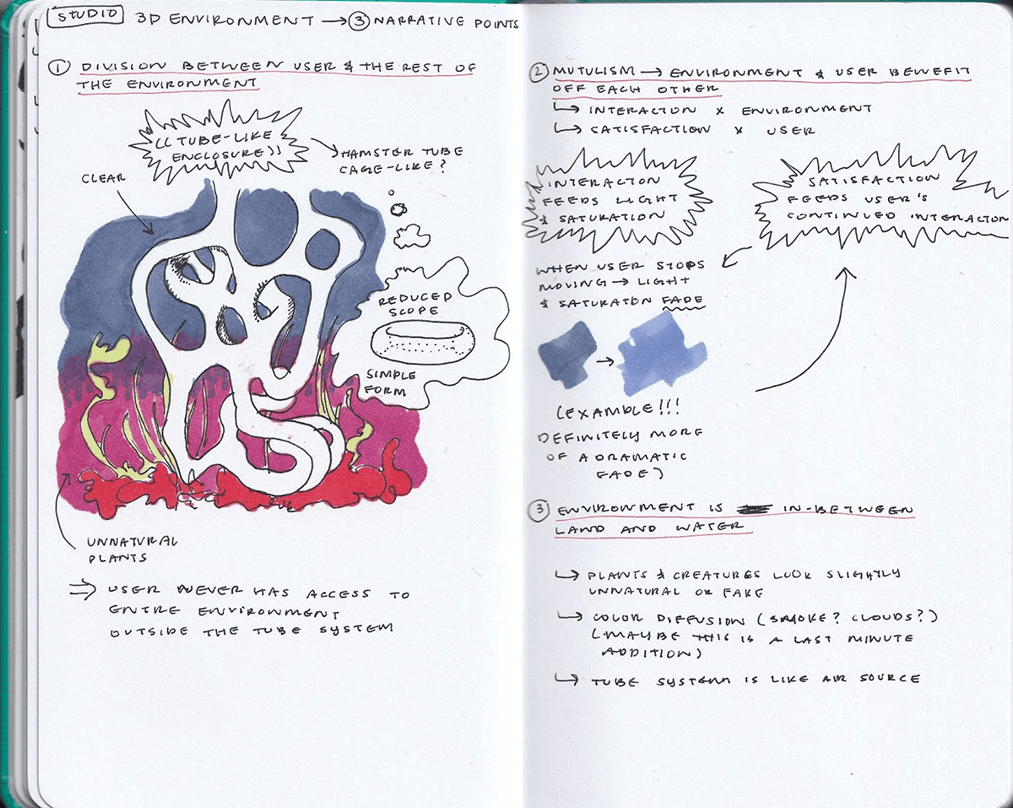 STUDIO 3D ENVIRONMENT → ③ NARRATIVE POINTS
① DIVISION BETWEEN USER & THE REST OF
THE ENVIRONMENT
((TUBE-LIKE
ENCLOSURE))
HAMSTER TUBE
CAGE-LIKE?
CLEAR
REDUCED
SCOPE
SIMPLE
FORM
UNNATURAL
PLANTS
⇒ USER NEVER HAS ACCESS TO
ENTIRE ENVIRONMENT
OUTSIDE THE TUBE SYSTEM
② MUTULISM → ENVIRONMENT & USER BENEFIT
OFF EACH OTHER
↳ INTERACTION × ENVIRONMENT
↳ SATISFACTION × USER
INTERACTON
FEEDS LIGHT
& SATURATION
SATISFACTION
FEEDS USER'S
CONTINUED INTERACTON
WHEN USER STOPS
MOVING → LIGHT
& SATURATON FADE
(EXAMPLE!!!
DEFINITELY MORE
OF A DRAMATIC
FADE)
③ ENVIRONMENT IS IN-BETWEEN
LAND AND WATER
↳ PLANTS & CREATURES LOOK SLIGHTLY
UNNATURAL OR FAKE
↳ COLOR DIFFUSION (SMOKE? CLOUDS?)
(MAYBE THIS IS A LAST MINUTE
ADDITION)
↳ TUBE SYSTEM IS LIKE AIR SOURCE